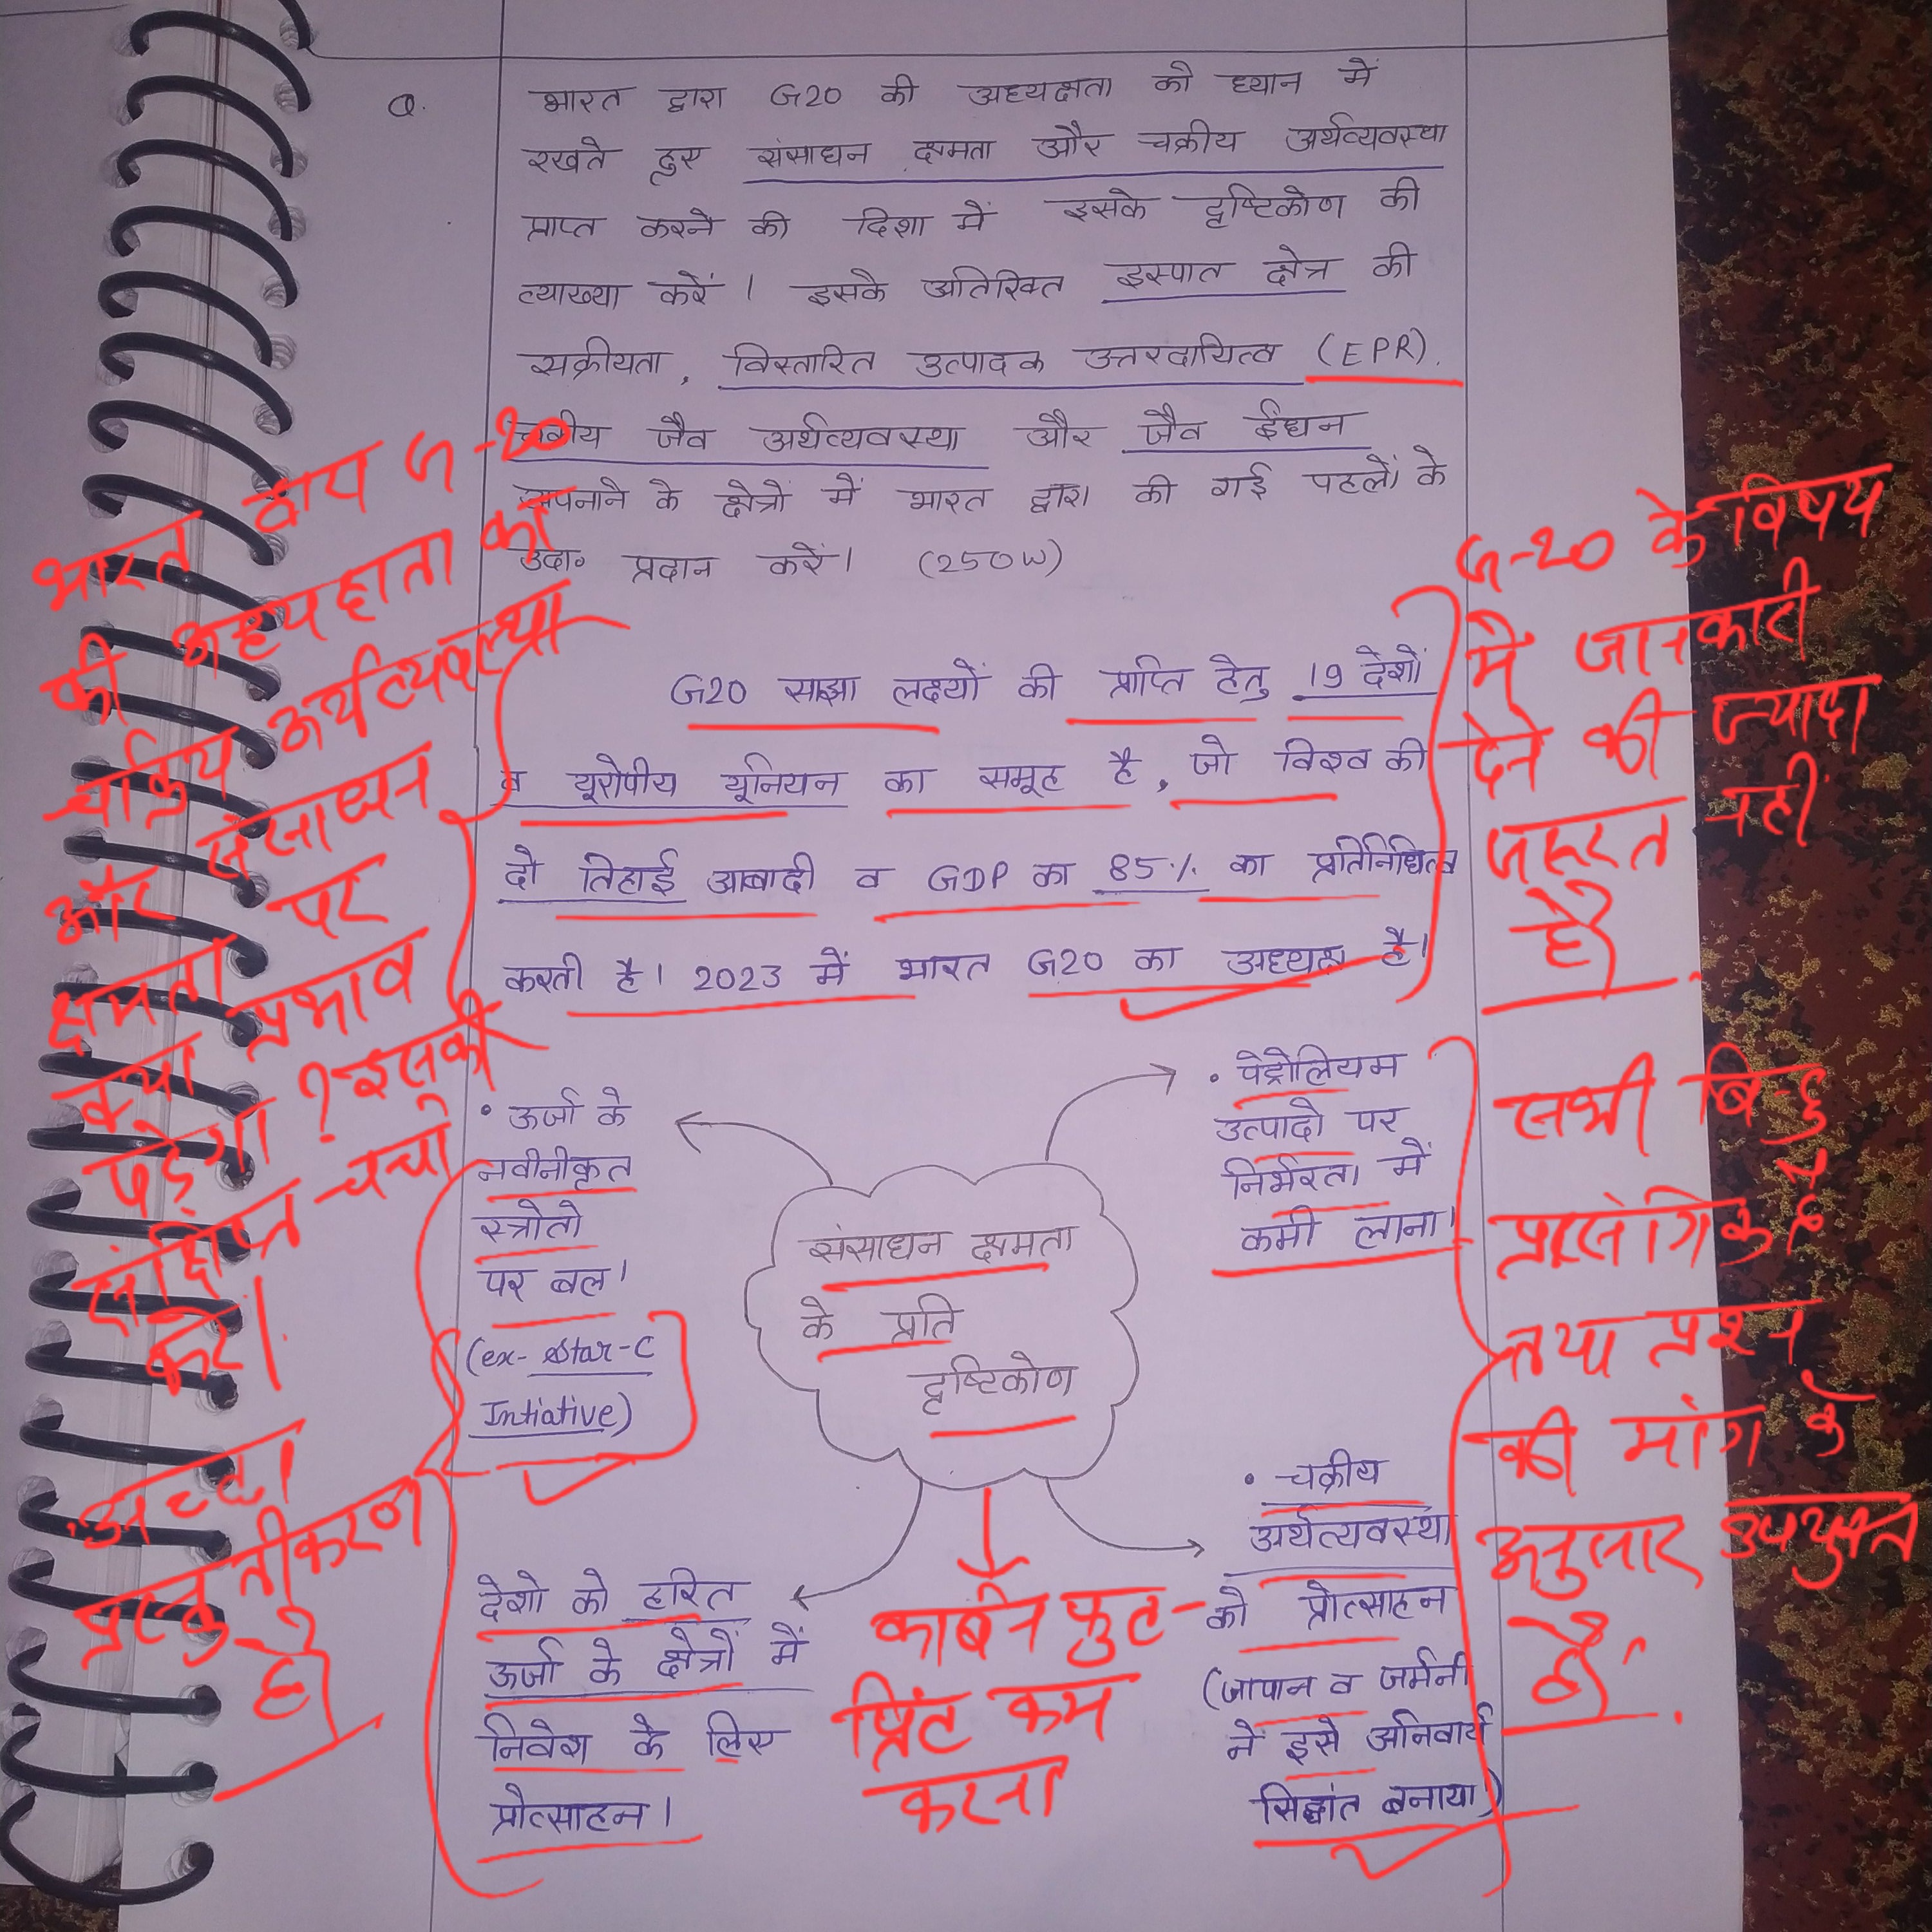 Q.
भारत द्वारा G20 की अध्यक्षता को ध्यान में
रखते हुए संसाधन क्षमता और चक्रीय अर्थव्यवस्था
प्राप्त करने की दिशा में इसके दृष्टिकोण की
व्याख्या करें। इसके अतिरिक्त इस्पात क्षेत्र की
सक्रीयता, विस्तारित उत्पादक उत्तरदायित्व (EPR),
चक्रीय जैव अर्थव्यवस्था और जैव ईंधन
अपनाने के क्षेत्रों में भारत द्वारा की गई पहलों के
उदा॰ प्रदान करें। (250W)
G20 साझा लक्ष्यों की प्राप्ति हेतु 19 देशों
व यूरोपीय यूनियन का समूह है, जो विश्व की
दो तिहाई आबादी व GDP का 85% का प्रतिनिधित्व
करती है। 2023 में भारत G20 का अध्यक्ष है।
भारत द्वारा G-20
की अध्यक्षता का
चक्रिय अर्थव्यवस्था
और संसाधन
क्षमता पर
क्या प्रभाव
पड़ेगा? इसकी
संक्षिप्त चर्चा
करें।
G-20 के विषय
में जानकारी
देने की ज्यादा
जरूरत नहीं
है।
संसाधन क्षमता
के प्रति
दृष्टिकोण
• ऊर्जा के
नवीनीकृत
स्त्रोतो
पर बल।
(ex- Star-C
Intiative)
• पेट्रोलियम
उत्पादो पर
निर्भरता में
कमी लाना।
देशो को हरित
ऊर्जा के क्षेत्रों में
निवेश के लिए
प्रोत्साहन।
• चक्रीय
अर्थव्यवस्था
को प्रोत्साहन
(जापान व जर्मनी
में इसे अनिवार्य
सिद्धांत बनाया)
कार्बन फुट-
प्रिंट कम
करना
अच्छा
प्रस्तुतीकरण
है।
सभी बिन्दु
प्रासंगिक है
तथा प्रश्न
की मांग के
अनुसार उपयुक्त
है।